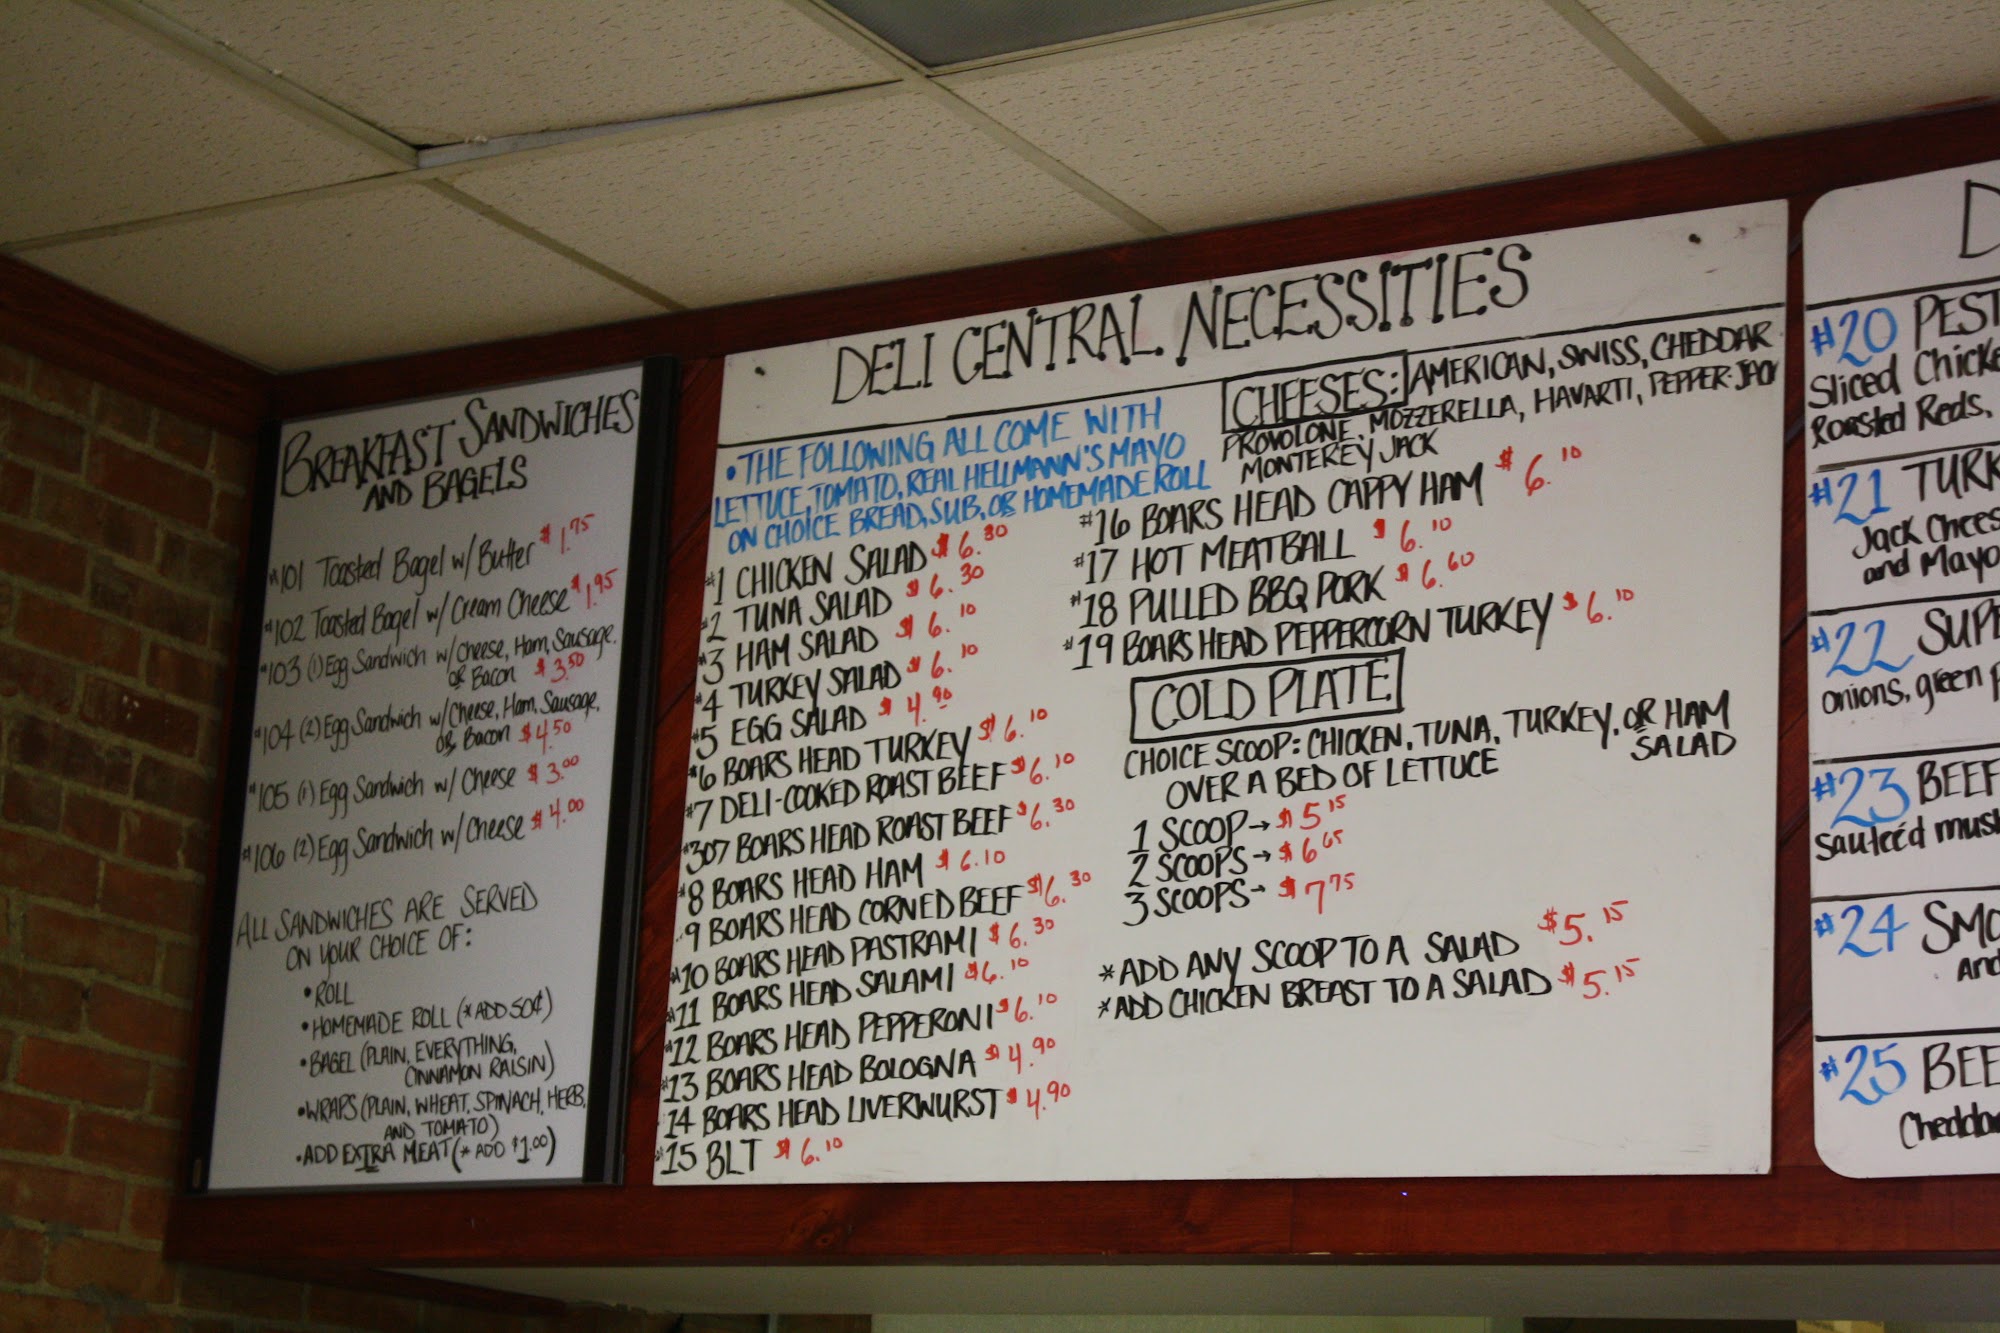 BREAKFAST SANDWICHES
AND BAGELS
#101 Toasted Bagel w/ Butter $1.75
#102 Toasted Bagel w/ Cream Cheese $1.95
#103 (1) Egg Sandwich w/ Cheese, Ham, Sausage,
OR Bacon $3.50
#104 (2) Egg Sandwich w/ Cheese, Ham, Sausage,
OR Bacon $4.50
#105 (1) Egg Sandwich w/ Cheese $3.00
#106 (2) Egg Sandwich w/ Cheese $4.00
ALL SANDWICHES ARE SERVED
ON YOUR CHOICE OF:
• ROLL
• HOMEMADE ROLL (* ADD 50¢)
• BAGEL (PLAIN, EVERYTHING,
CINNAMON RAISIN)
• WRAPS (PLAIN, WHEAT, SPINACH, HERB,
AND TOMATO)
• ADD EXTRA MEAT (* ADD $1.00)
DELI CENTRAL NECESSITIES
• THE FOLLOWING ALL COME WITH
LETTUCE, TOMATO, REAL HELLMANN'S MAYO
ON CHOICE BREAD, SUB, OR HOMEMADE ROLL
#1 CHICKEN SALAD $6.30
#2 TUNA SALAD $6.30
#3 HAM SALAD $6.10
#4 TURKEY SALAD $6.10
#5 EGG SALAD $4.90
#6 BOARS HEAD TURKEY $6.10
#7 DELI-COOKED ROAST BEEF $6.10
#307 BOARS HEAD ROAST BEEF $6.30
#8 BOARS HEAD HAM $6.10
#9 BOARS HEAD CORNED BEEF $6.30
#10 BOARS HEAD PASTRAMI $6.30
#11 BOARS HEAD SALAMI $6.10
#12 BOARS HEAD PEPPERONI $6.10
#13 BOARS HEAD BOLOGNA $4.90
14 BOARS HEAD LIVERWURST $4.90
#15 BLT $6.10
CHEESES: AMERICAN, SWISS, CHEDDAR
PROVOLONE, MOZZERELLA, HAVARTI, PEPPER-JACK
MONTEREY JACK
#16 BOARS HEAD CAPPY HAM $6.10
#17 HOT MEATBALL $6.10
#18 PULLED BBQ PORK $6.60
#19 BOARS HEAD PEPPERCORN TURKEY $6.10
COLD PLATE
CHOICE SCOOP: CHICKEN, TUNA, TURKEY, OR HAM
SALAD
OVER A BED OF LETTUCE
1 SCOOP→ $5.15
2 SCOOPS→ $6.65
3 SCOOPS→ $7.75
* ADD ANY SCOOP TO A SALAD $5.15
* ADD CHICKEN BREAST TO A SALAD $5.15
#20 PEST
Sliced Chicke
Roasted Reds,
#21 TURK
Jack Chees
and Mayo
#22 SUPE
onions, green p
#23 BEEF
Sauteéd mush
#24 SMO
And
#25 BEE
Cheddar